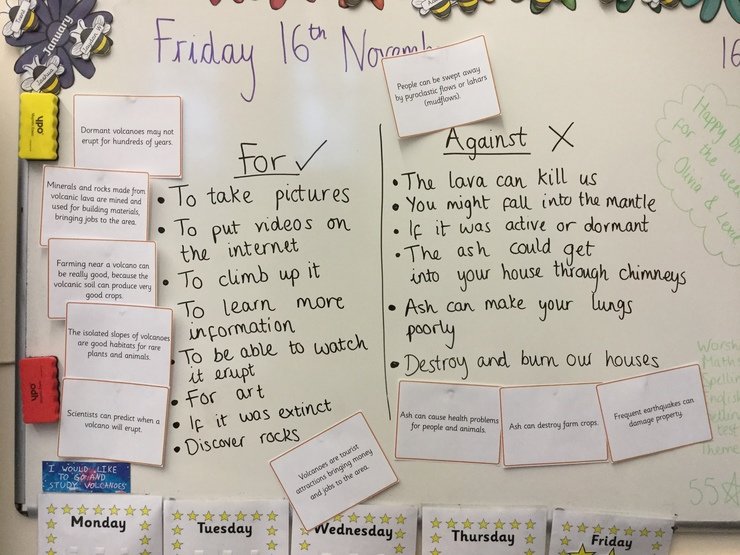 January
Friday 16th Novemb
16
People can be swept away
by pyroclastic flows or lahars
(mudflows).
Dormant volcanoes may not
erupt for hundreds of years.
Minerals and rocks made from
volcanic lava are mined and
used for building materials,
bringing jobs to the area.
Farming near a volcano can
be really good, because the
volcanic soil can produce very
good crops.
The isolated slopes of volcanoes
are good habitats for rare
plants and animals.
Scientists can predict when a
volcano will erupt.
For ✓
• To take pictures
• To put videos on
the internet
• To climb up it
• To learn more
information
• To be able to watch
it erupt
• For art
• If it was extinct
• Discover rocks
Volcanoes are tourist
attractions bringing money
and jobs to the area.
Against X
• The lava can kill us
• You might fall into the mantle
• If it was active or dormant
• The ash could get
into your house through chimneys
• Ash can make your lungs
poorly
• Destroy and burn our houses
Ash can cause health problems
for people and animals.
Ash can destroy farm crops.
Frequent earthquakes can
damage property.
Happy
for the
Olivia & Lexie
Maths
test
55
ypo
ypo
I WOULD LIKE
TO GO AND
STUDY VOLCANOES
Monday
Tuesday
Wednesday
Thursday
Friday